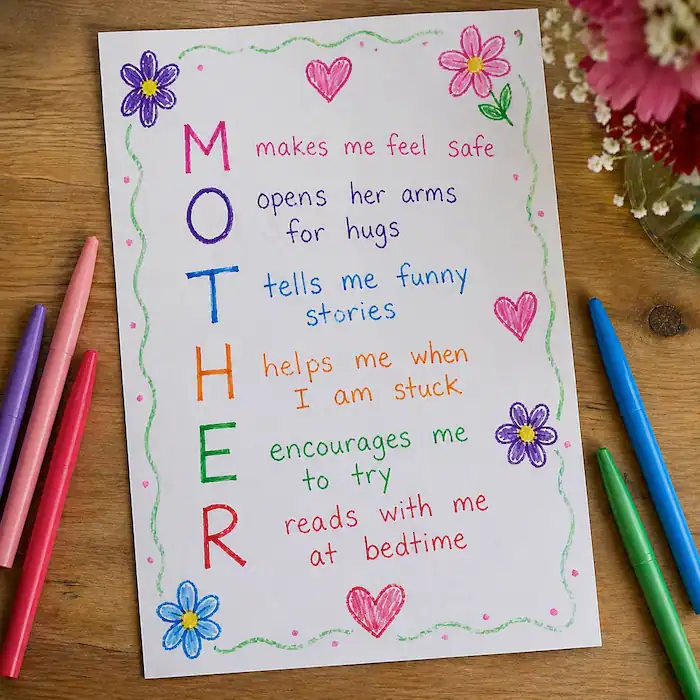 M makes me feel safe
O opens her arms
for hugs
T tells me funny
stories
H helps me when
I am stuck
E encourages me
to try
R reads with me
at bedtime